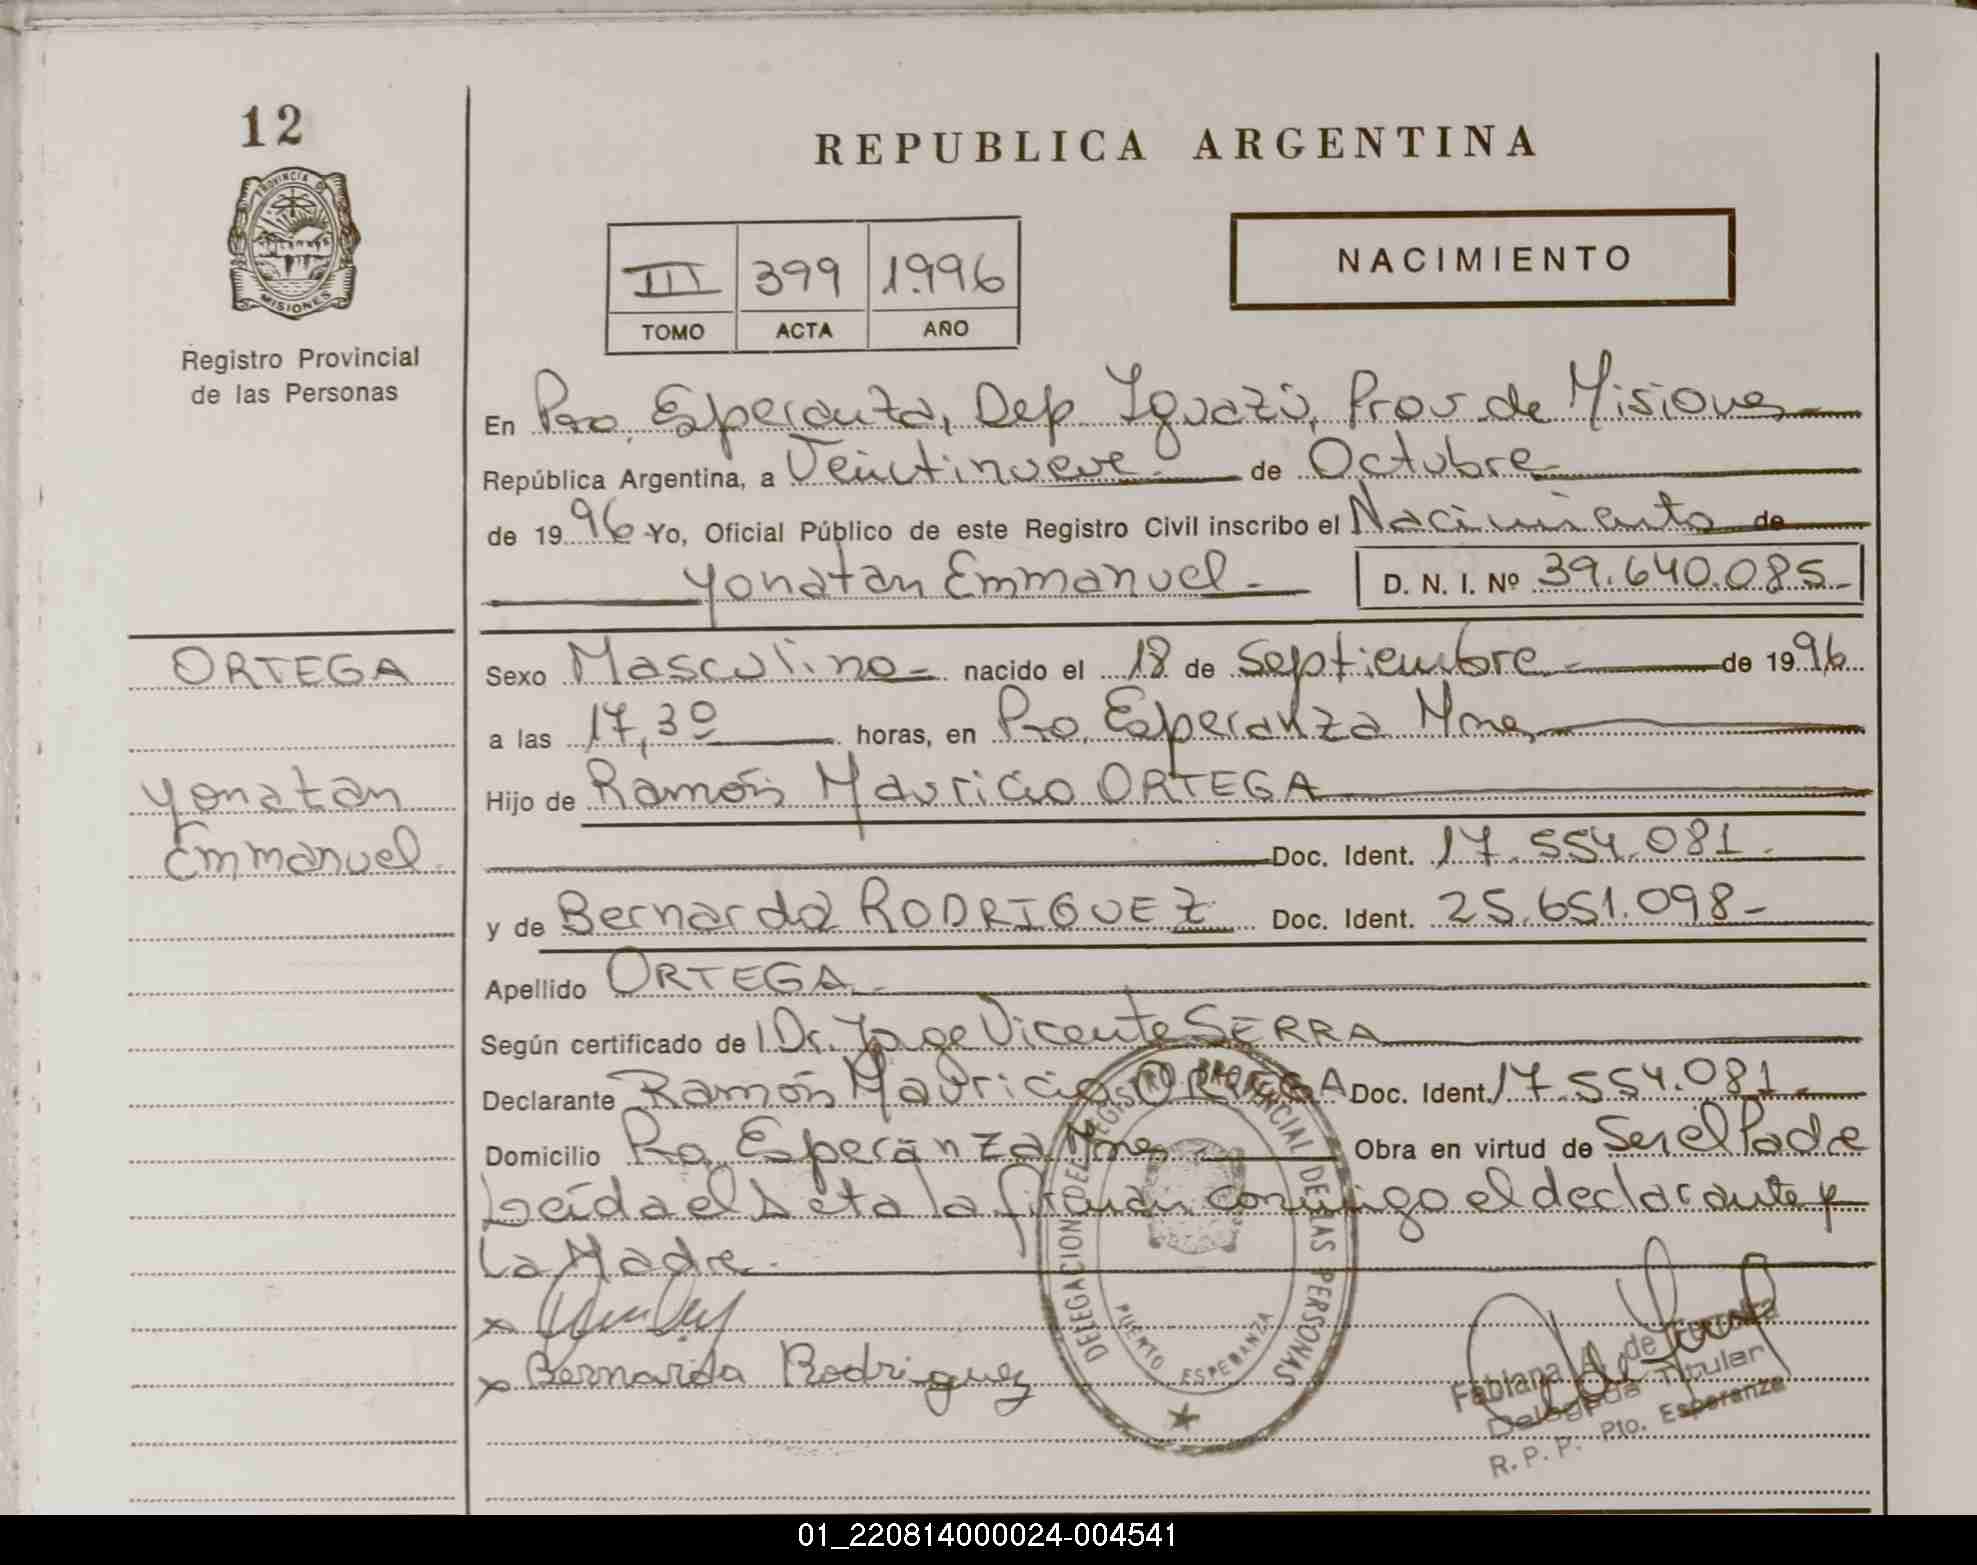 12
PROVINCIA DE
MISIONES
Registro Provincial
de las Personas
REPUBLICA ARGENTINA
III 399 1.996
TOMO ACTA AÑO
NACIMIENTO
En Pto. Esperanza, Dep. Iguazú, Prov de Misiones
República Argentina, a Veintinueve de Octubre
de 1996 Yo, Oficial Público de este Registro Civil inscribo el Nacimiento de
Yonatan Emmanuel D. N. I. Nº 39.640.085
Sexo Masculino nacido el 18 de Septiembre de 1996
a las 17,30 horas, en Pto. Esperanza Mnes
Hijo de Ramón Mauricio ORTEGA
Doc. Ident. 17.554.081
y de Bernarda RODRIGUEZ Doc. Ident. 25.651.098
Apellido ORTEGA
Según certificado de Dr. Jorge Vicente SERRA
Declarante Ramón Mauricio ORTEGA Doc. Ident. 17.554.081
Domicilio Pto. Esperanza Mnes Obra en virtud de Ser el Padre
Leída el Acta la firman conmigo el declarante y
La Madre.
x
x Bernarda Rodriguez
ORTEGA
Yonatan
Emmanuel
DELEGACION DEL REGISTRO PROVINCIAL DE LAS PERSONAS
PUERTO ESPERANZA
Fabiana A. de
Delegada Titular
R. P. P. Pto. Esperanza
01_220814000024-004541